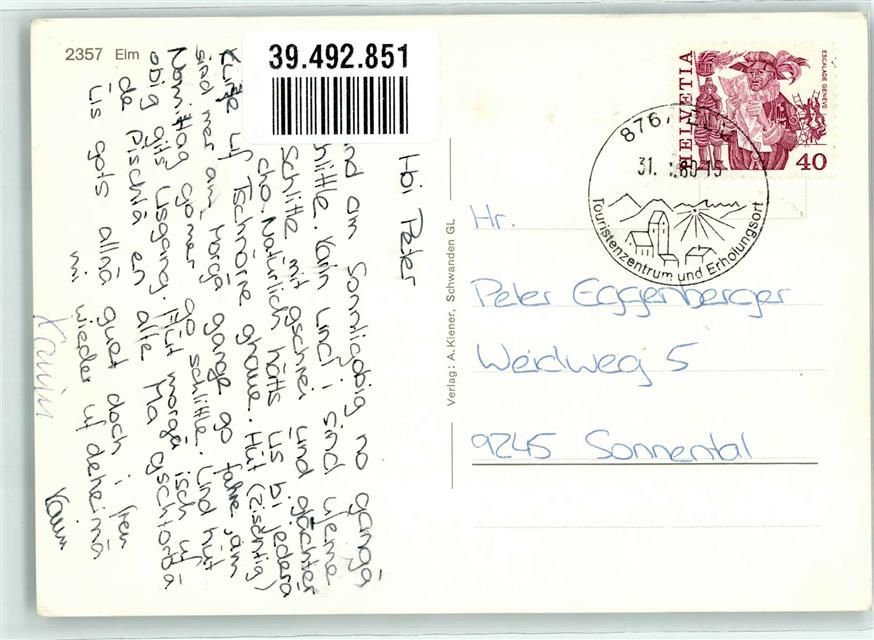 2357 Elm
39.492.851
Hoi Peter
nd am Sunntigobig no gangä
hlittle. Karin und i sind ufeme
Schlitte mit gschrei und glächter
cho. Natürlich hätts us bi jederä
Kurve uf Tschnörre ghaue. Hüt (Zisäntig)
sind mer am Morgä gange go fahre, am
Nomittog gomer go schlittle. Und hüt
obig gits Usgang. Hüt morgä isch uf
de Pischtä en alte Ma gschtorbä
Üs gots allnä guet doch i freu
mi wieder uf deheimä
Karin
Karin
Verlag: A. Kiener, Schwanden GL
HELVETIA
ESCALADE GENÈVE
40
876 ELM
31. 80-15
Touristenzentrum und Erholungsort
Hr.
Peter Eggenberger
Weidweg 5
9245 Sonnental